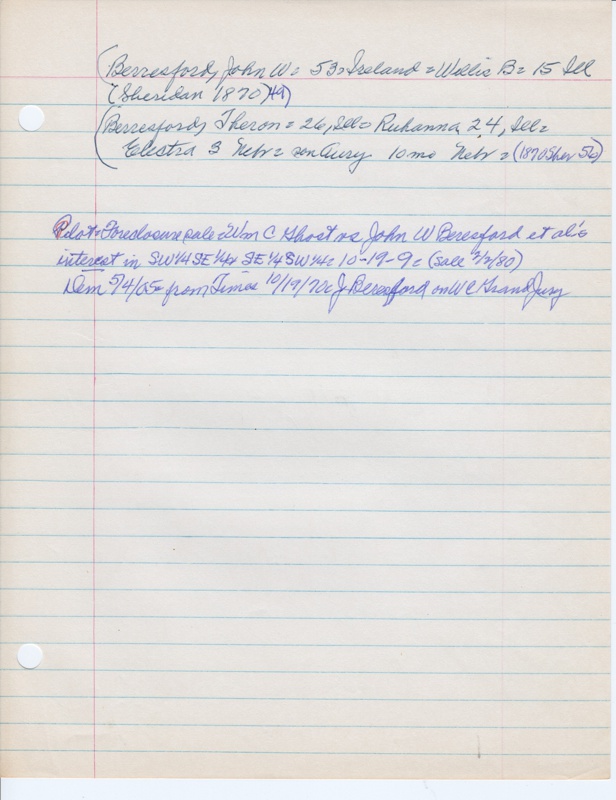 (Berresford, John W = 53 = Ireland = Willis B = 15 Ill
(Sheridan 1870) 49)
(Berresford, Theron = 26, Ill = Ruhanna 24, Ill =
Electra 3 Nebr = son Avry 10 mo Nebr = (1870 Sher 56)
Pilot = Foreclosure sale = Wm C Ghost vs John W Beresford et al's
interest in SW 1/4 SE 1/4 & SE 1/4 SW 1/4 = 10-19-9 = (sale 2/2/80)
Dem 5/4/05 = from Times 10/19/70 = J Beresford on W C Grand Jury